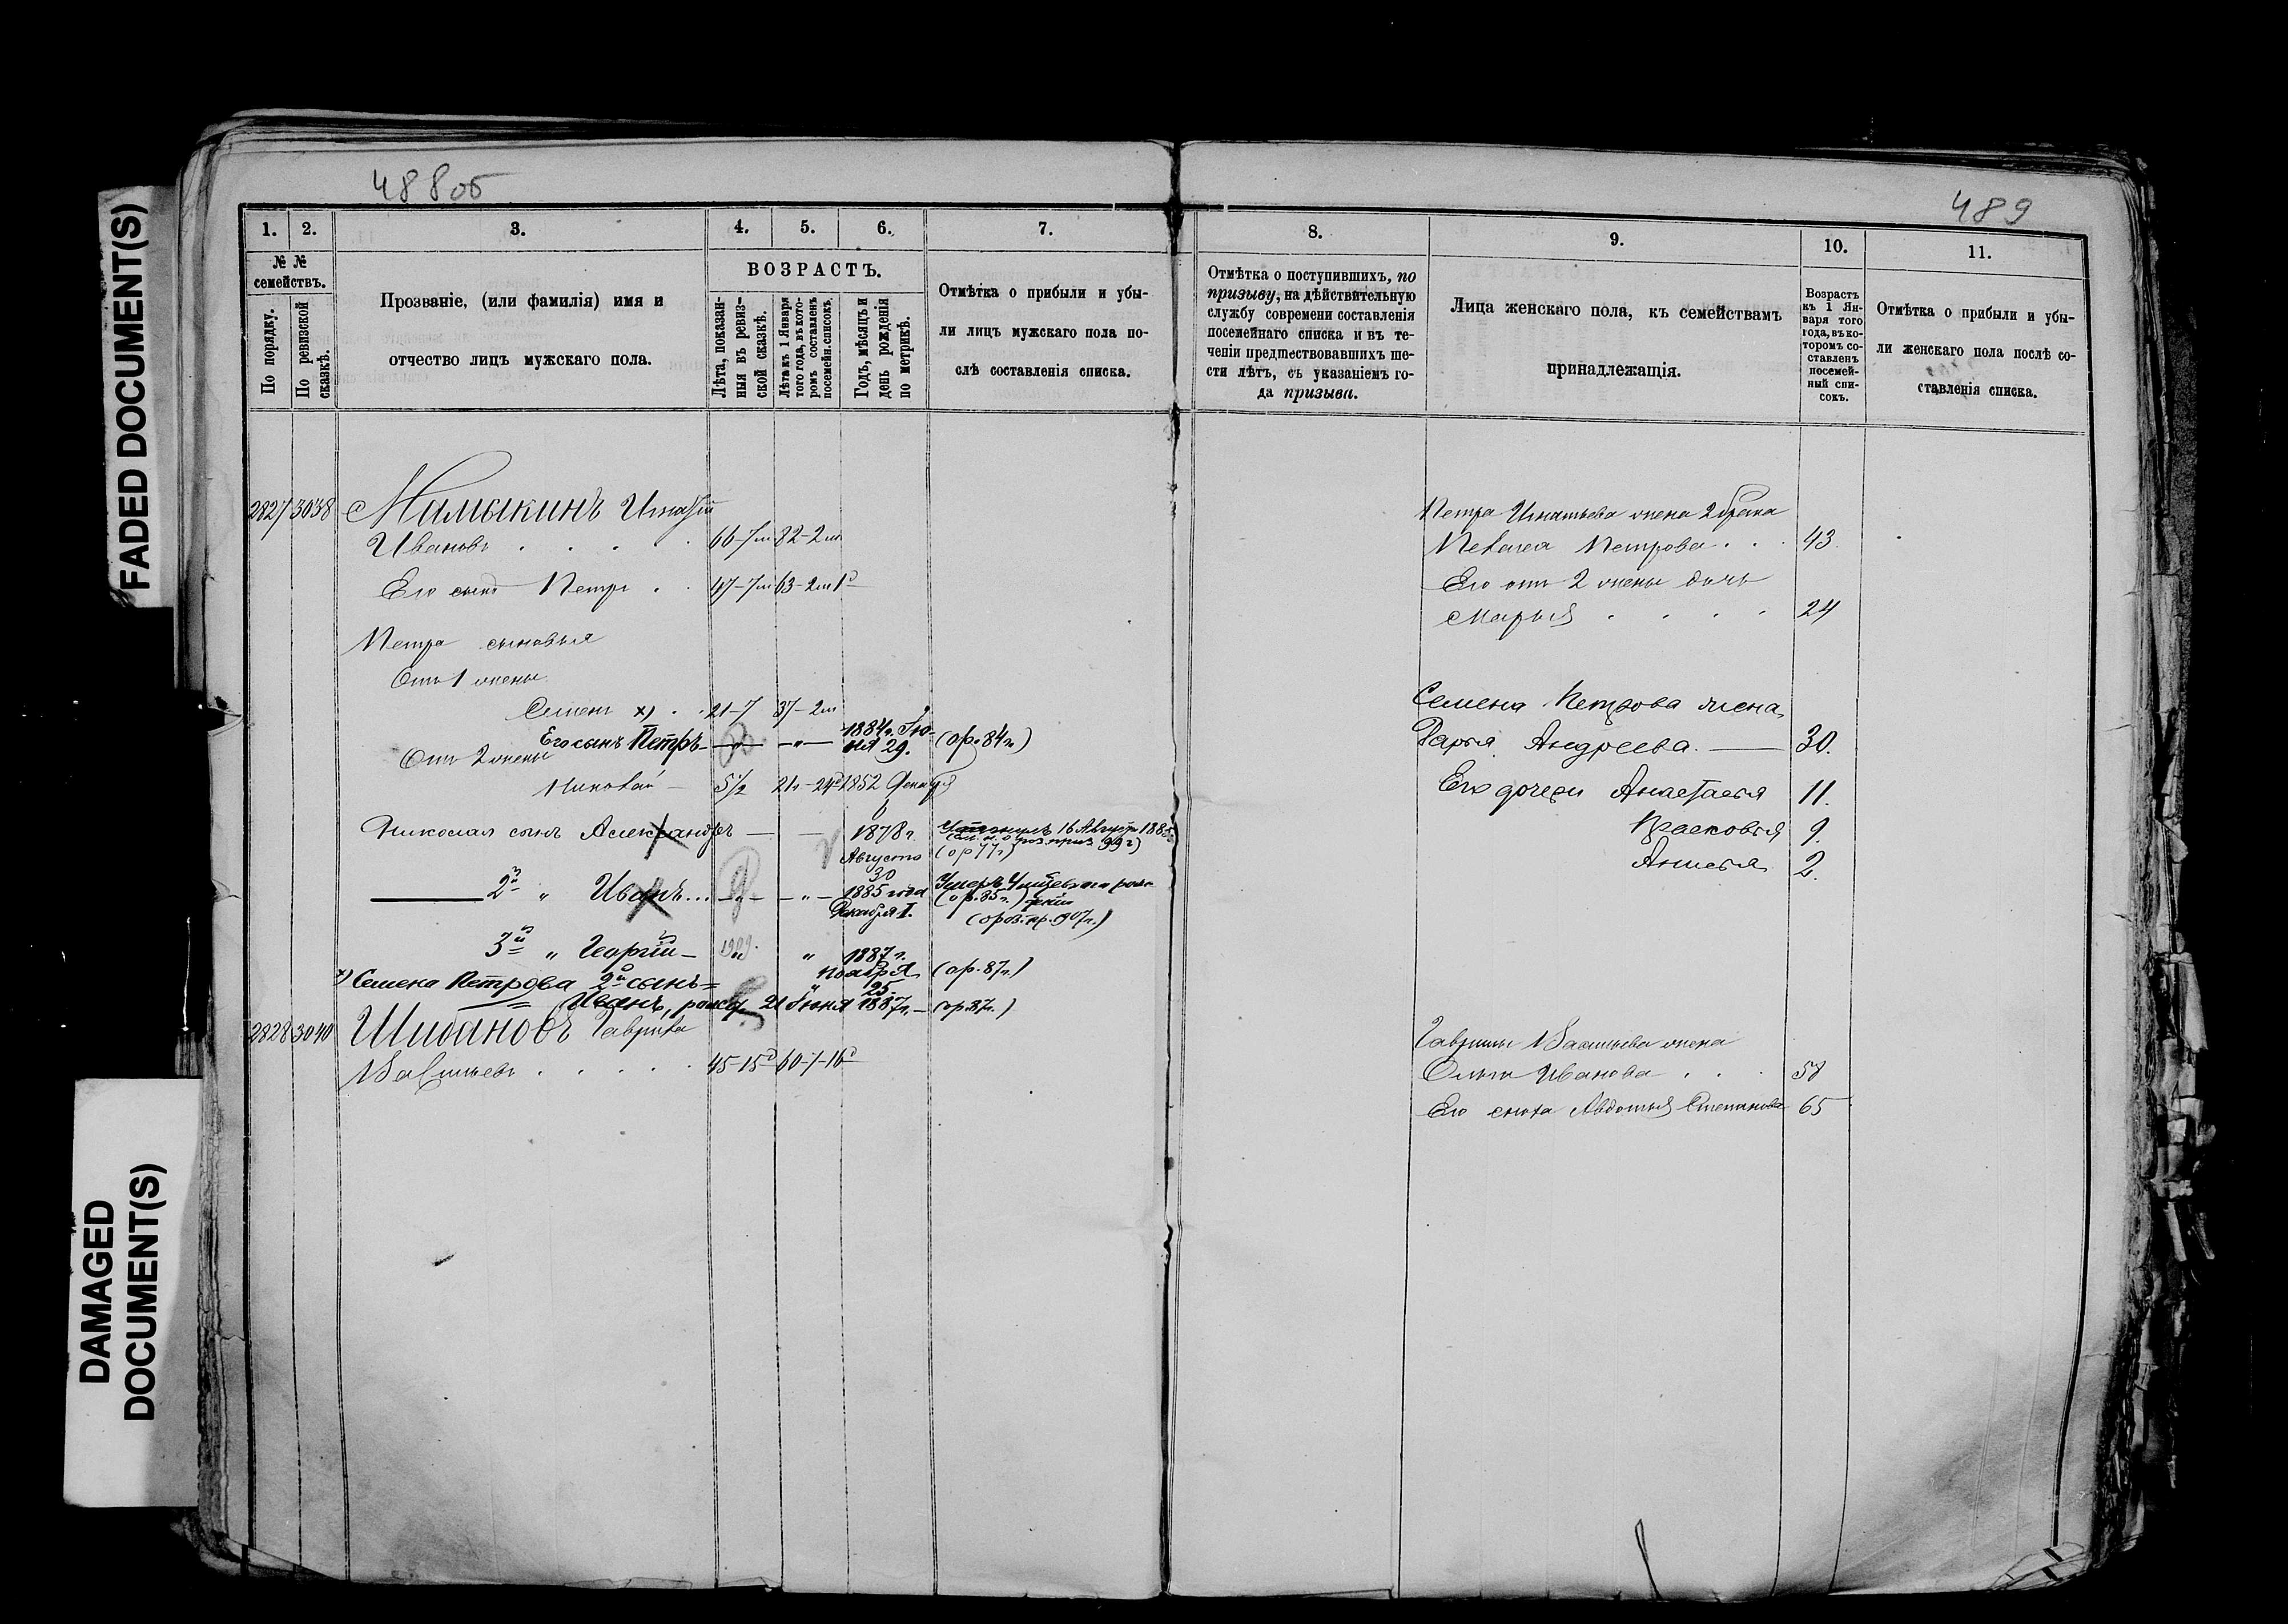 FADED DOCUMENT(S)
DAMAGED
DOCUMENT(S)
488об
1. 2. 3. 4. 5. 6. 7.
№ №
семействъ.
По порядку.
По ревизской
сказкѣ.
Прозваніе, (или фамилія) имя и
отчество лицъ мужскаго пола.
ВОЗРАСТЪ.
Лѣта, показан-
ныя въ ревиз-
ской сказкѣ.
Лѣта къ 1 Января
того года, въ кото-
ромъ составленъ
посемейн. списокъ.
Годъ, мѣсяцъ и
день рожденія
по метрикѣ.
Отмѣтка о прибыли и убы-
ли лицъ мужскаго пола по-
слѣ составленія списка.
2827 3038 Мамыкинъ Игнатій
Ивановъ . . . . . 66-7м 82-2м
Его сынъ Петръ . . 47-7м 63-2м 1д
Петра сыновья
Отъ 1 жены
Семенъ х) . . 21-7 37-2м
Его сынъ Петръ — „ — — „ — 1884г. Iю-
ня 29. (ор. 84г.)
Отъ 2 жены
Николай — 5 1/2 21г-24д 1852 Декабря
6
Николая сынъ Александръ — — 1878г.
Августа
30
16 Август 1885
(ор 77г)
2й „ Иванъ... — „ — — „ — 1885 года
Декабря 1.
Умеръ
(ор. 85г.)
3й „ Георгій — 1909. „ „ 1887г.
ноября
25. (ор. 87г.)
х) Семена Петрова 2й сынъ =
Иванъ, рожд. 21 Iюня 1887г. — (ор. 87г.)
2828 3040 Шибановъ Гаврила
Васильевъ . . . . . 45-15д 60-7-16д
489
8. 9. 10. 11.
Отмѣтка о поступившихъ, по
призыву, на дѣйствительную
службу современи составленія
посемейнаго списка и въ те-
ченіи предшествовавшихъ ше-
сти лѣтъ, съ указаніемъ го-
да призыва.
Лица женскаго пола, къ семействамъ
принадлежащія.
Возрастъ
къ 1 Ян-
варя того
года, въ ко-
торомъ со-
ставленъ
посемей-
ный спи-
сокъ.
Отмѣтка о прибыли и убы-
ли женскаго пола послѣ со-
ставленія списка.
Петра Игнатьева жена 2 брака
Пелагея Петрова . . . 43.
Его отъ 2 жены дочь
Марья . . . . 24
Семена Петрова жена,
Дарья Андреева. — 30.
Его дочери Анастасья 11.
Прасковья 9.
Анисья 2.
Гаврилы Васильева жена
Ольга Иванова . . . 58
Его сноха Авдотья Степанова 65